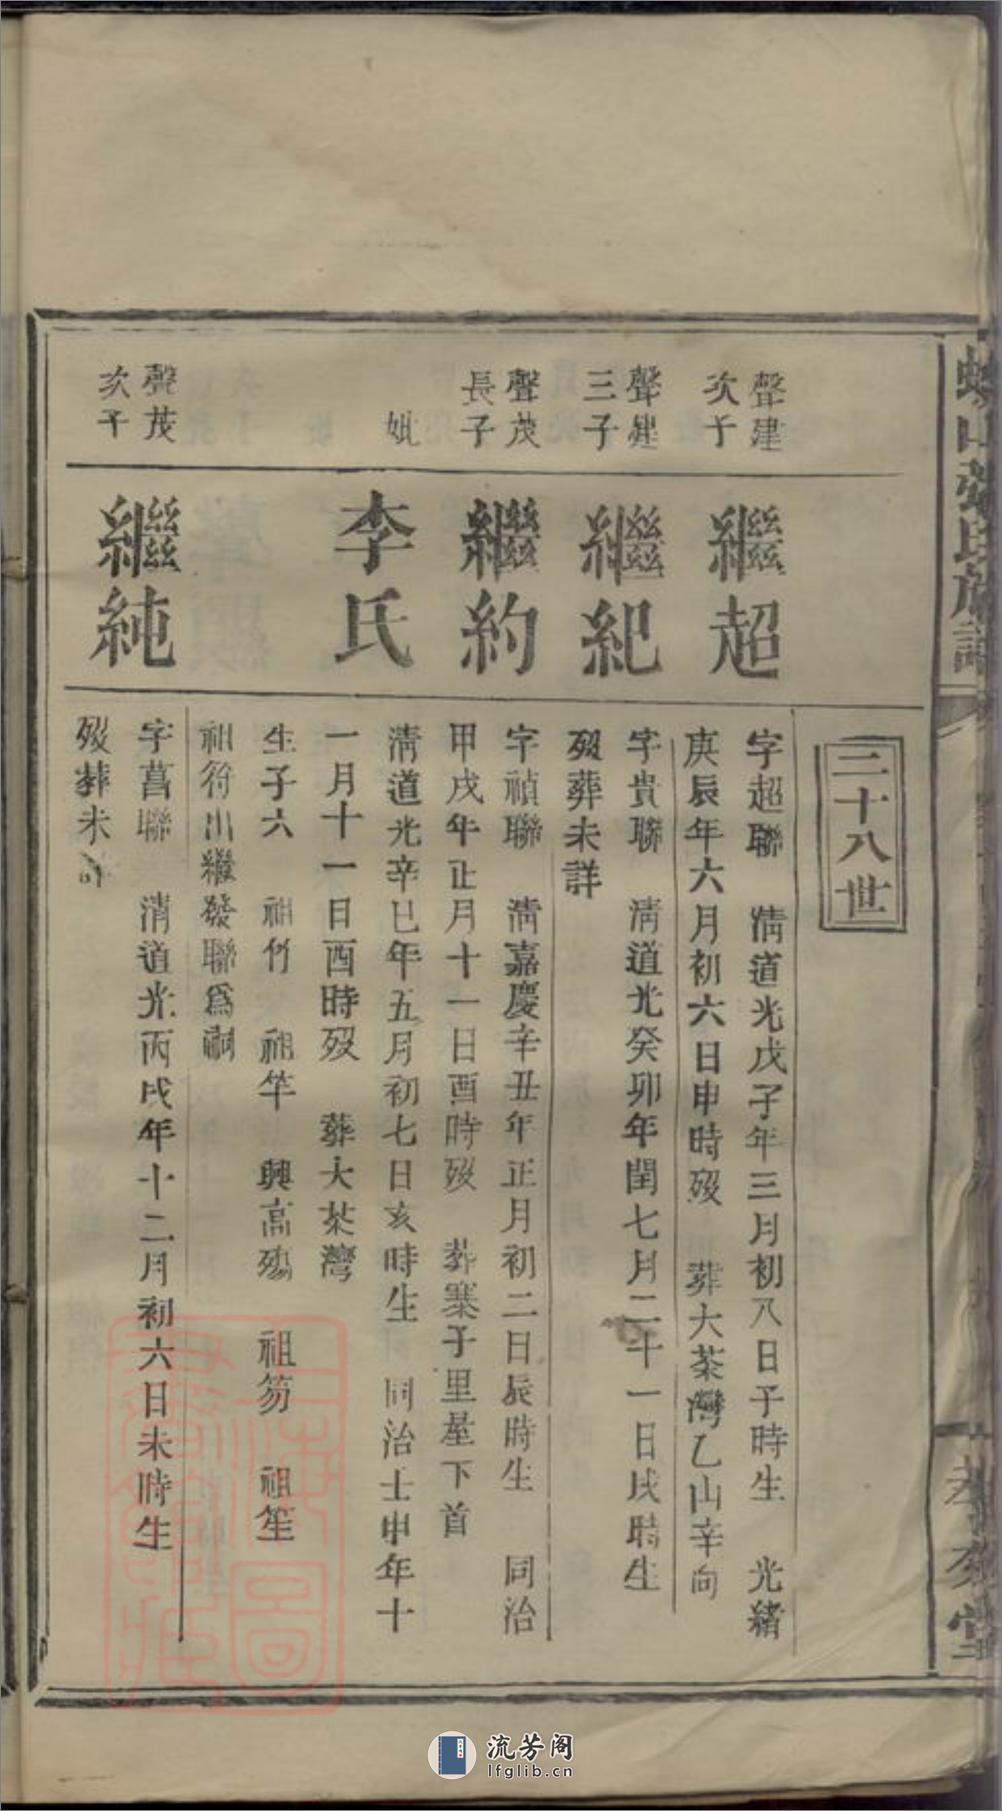 二十八世
聲建
次子
繼超
字超聯 淸道光戊子年三月初八日子時生 光緖
庚辰年六月初六日申時歿 葬大茶灣乙山辛向
聲建
三子
繼紀
字貴聯 淸道光癸卯年閏七月二十一日戌時生
歿葬未詳
聲茂
長子
繼約
字禎聯 淸嘉慶辛丑年正月初二日辰時生 同治
甲戌年正月十一日酉時歿 葬寨子里屋下首
妣
李氏
淸道光辛巳年五月初七日亥時生 同治士申年十
一月十一日酉時歿 葬大茶灣
生子六 祖竹 祖竿 興高殤 祖笏 祖笙
祖符出繼發聯爲嗣
聲茂
次子
繼純
字菖聯 淸道光丙戌年十二月初六日未時生
歿葬未
山張氏族譜
堂
上海圖書館藏
流芳阁
lfglib.cn